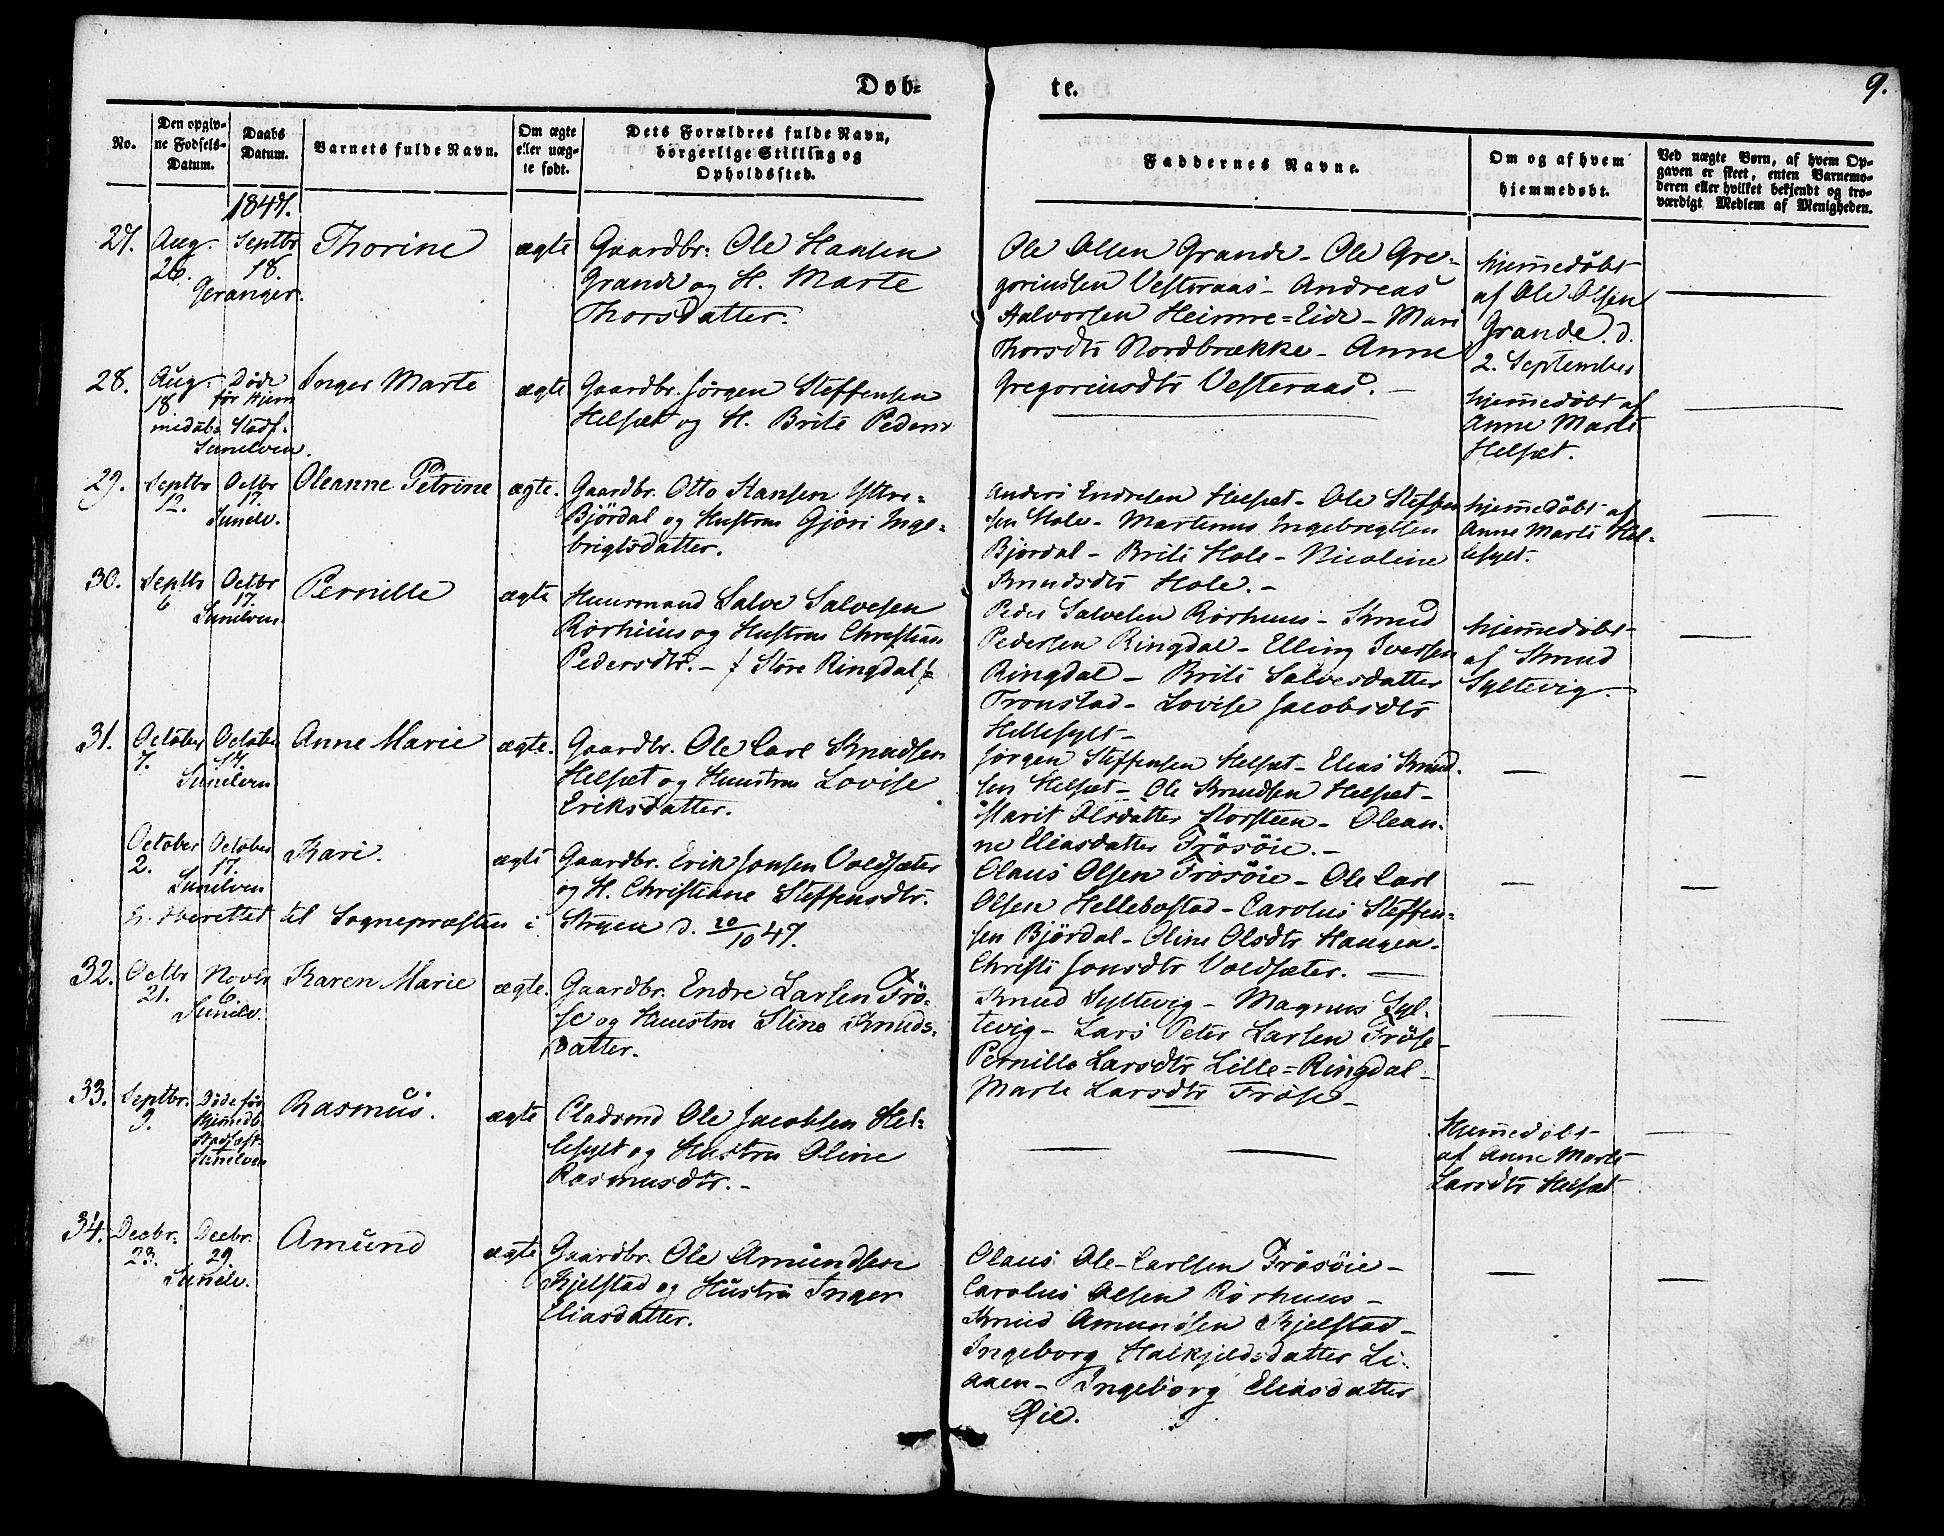 Døb-
te.
9.
No.
Den opgiv-
ne Fødsels-
Datum.
Daabs
Datum.
Barnets fulde Navn.
Om ægte
eller uæg-
te født.
Dets Forældres fulde Navn,
borgerlige Stilling og
Opholdssted.
Faddernes Navne.
Om og af hvem
hjemmedøbt.
Ved uægte Børn, af hvem Op-
gaven er skeet, enten Barnemo-
deren eller hvilket bekjendt og tro-
værdigt Medlem af Menigheden.
1847.
27.
Aug.
26.
Septbr
18.
Geranger.
Thorine
ægte
Gaardbr: Ole Hansen
Grande og H. Marte
Thorsdatter.
Ole Olsen Grande - Ole Gre-
goriussen Vesteraas - Andreas
Halvorsen Heimre=Eide - Mari
Thorsdtr Nordbrække - Anne
Gregoriusdtr Vesteraas. -
hjemedøbt
af Ole Olsen
Grande d.
2. September
28.
Aug.
18
Døde
før Hjem
medåbs Stadf.
Sunelven.
Inger Marte
ægte
Gaardbr. Jørgen Steffensen
Helsæt og H. Brite Peders
hjemedøbt af
Anne Marte
Helsæt.
29.
Septbr
12.
Octbr
17.
Sunelv.
Oleanne Petrine
ægte.
Gaardbr. Otto Hansen Yttre-
Bjørdal og Hustru Gjøri Inge-
brigtsdatter.
Anders Endresen Helsæt - Ole Steffen
sen Hole - Martinus Ingebregtsen
Bjørdal - Brite Hole - Nicoline
Knudsdtr Hole. -
hjemedøbt af
Anne Marte Hel-
lesyet.
30.
Septbr
6
Octbr
17.
Sunelven
Pernille
ægte
Huusmand Salve Salvesen
Rørhuus og Hustru Christian
Pedersdtr. - / Store Ringdal /
Peder Salvesen Rørhuus - Knud
Pedersen Ringdal - Elling Iversen
Ringdal - Brite Salvesdatter
Tronstad - Lovise Jacobsdtr
Hellesylt -
hjemedøbt
af Knud
Syltevig -
31.
October
7.
Octobr
17.
Sunelven
Anne Marie
ægte.
Gaardbr. Ole Carl Knudsen
Helsæt og Huustru Lovise
Eriksdatter.
Jørgen Steffensen Helsæt - Elias Knud-
sen Helsæt - Ole Knudsen Helsæt -
Marit Olsdatter Korsteen - Olean-
ne Eliasdatter Frøsøie. -
October
2.
October
17.
Sunelven
Kari.
ægte
Gaardbr. Erik Jonsen Voldsæter
og H. Christiane Steffensdtr.
Indberettet til Sognepræsten i Stryen d. 20/10 47.
Olaus Olsen Frøsøie - Ole Carl
Olsen Hellebostad - Carolus Steffen-
sen Bjørdal - Oline Olsdtr Haugen -
Christi Jonsdtr Voldsæter. -
32.
Octbr
21.
Novbr
6.
Sunelv.
Karen Marie
ægte.
Gaardbr. Endre Larsen Frø-
se og Huustru Stine Knuds-
datter.
Knud Syltevig - Magnus Syl-
tevig - Lars Peter Larsen Frøse -
Pernille Larsdtr Lille=Ringdal -
Marte Larsdtr Frøse -
33.
Septbr.
9.
Døde før
Hjemedb.
Stadfæst.
Sunelven
Rasmus.
ægte
Pladsmd Ole Jacobsen Hel-
lesylt og Hustru Oline
Rasmusdtr. -
hjemedøbt
af Anne Marte
Larsdtr Helsæt
34.
Decbr.
23.
Decbr.
29.
Sunelv.
Amund
ægte
Gaardbr. Ole Amundsen
Kjelstad og Hustru Inger
Eliasdatter.
Olaus Ole-Carlsen Frøsøie -
Carolus Olsen Rørhuus -
Knud Amundsen Kjelstad -
Ingeborg Halkjeldsdatter Li-
aaen - Ingeborg Eliasdatter
Øie.